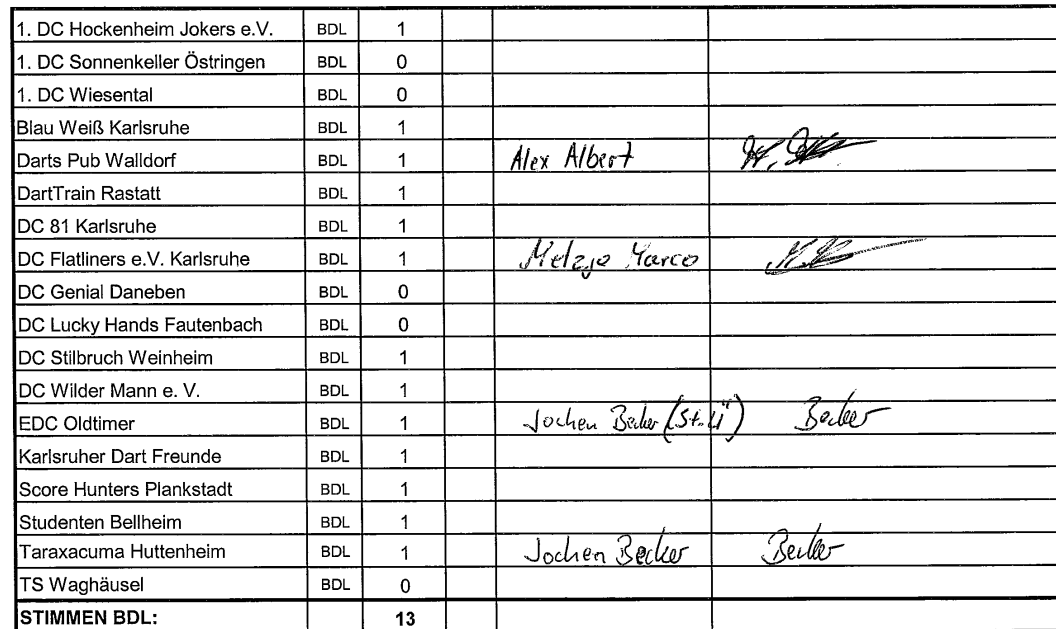 1. DC Hockenheim Jokers e.V. BDL 1
1. DC Sonnenkeller Östringen BDL 0
1. DC Wiesental BDL 0
Blau Weiß Karlsruhe BDL 1
Darts Pub Walldorf BDL 1 Alex Albert
DartTrain Rastatt BDL 1
DC 81 Karlsruhe BDL 1
DC Flatliners e.V. Karlsruhe BDL 1 Marco
DC Genial Daneben BDL 0
DC Lucky Hands Fautenbach BDL 0
DC Stilbruch Weinheim BDL 1
DC Wilder Mann e. V. BDL 1
EDC Oldtimer BDL 1 Jochen Becker (St.Ü) Becker
Karlsruher Dart Freunde BDL 1
Score Hunters Plankstadt BDL 1
Studenten Bellheim BDL 1
Taraxacuma Huttenheim BDL 1 Jochen Becker Becker
TS Waghäusel BDL 0
STIMMEN BDL: 13